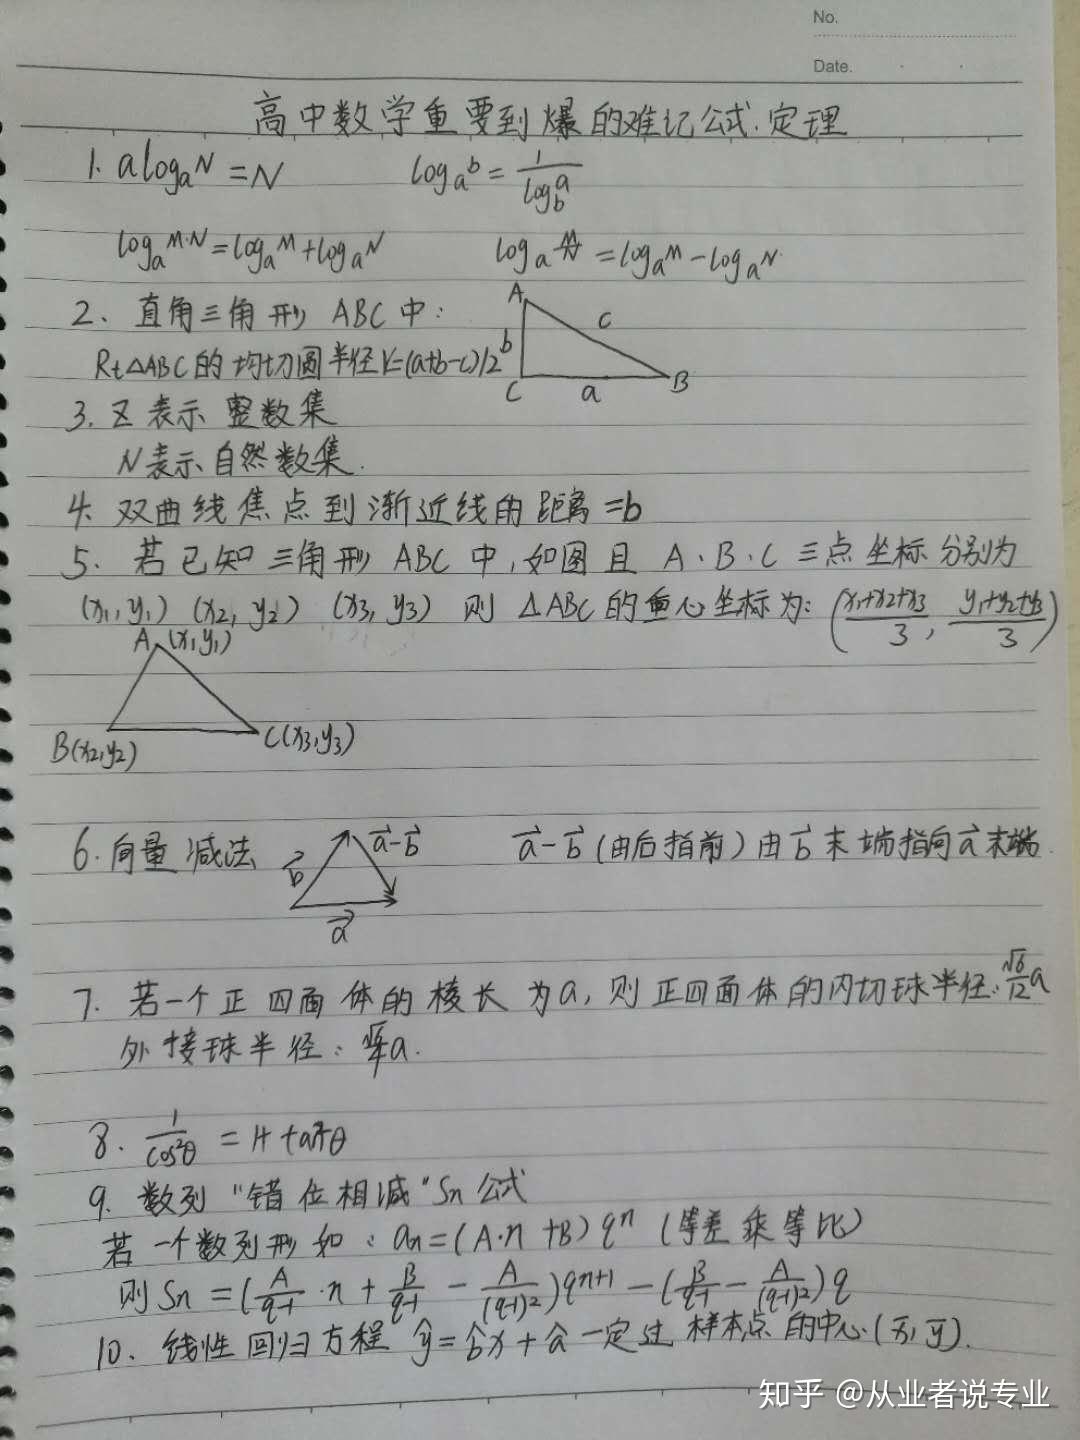 No.
Date.
高中数学重要到爆的难记公式.定理
1. a^{log_a N} = N    log_a b = 1/log_b a
log_a M·N = log_a M + log_a N    log_a M/N = log_a M - log_a N
2、直角三角形 ABC 中:
A
c
Rt△ABC的内切圆半径 r=(a+b-c)/2
b
C a B
3. Z 表示 整数集
N 表示自然数集.
4. 双曲线焦点到渐近线的距离 =b
5. 若已知三角形 ABC 中,如图且 A·B·C 三点坐标分别为
(x1,y1) (x2, y2) (x3, y3) 则 △ABC的重心坐标为: (x1+x2+x3/3, y1+y2+y3/3)
A (x1,y1)
B(x2,y2) C(x3,y3)
6. 向量减法 b→ a→-b→ a→-b→ (由后指前) 由 b→ 末端指向 a→ 末端.
a→
7. 若一个正四面体的棱长为a, 则正四面体的内切球半径: √6/12 a
外接球半径: √6/4 a.
8. 1/cos²θ = 1+tan²θ
9. 数列 "错位相减" Sn 公式
若一个数列形如: an=(A·n+B)q^n (等差乘等比)
则 Sn = (A/q-1 ·n + B/q-1 - A/(q-1)²)q^{n+1} - (B/q-1 - A/(q-1)²)q
10. 线性回归方程 ŷ=b̂x+â 一定过 样本点的中心(x̄, ȳ).
知乎 @从业者说专业